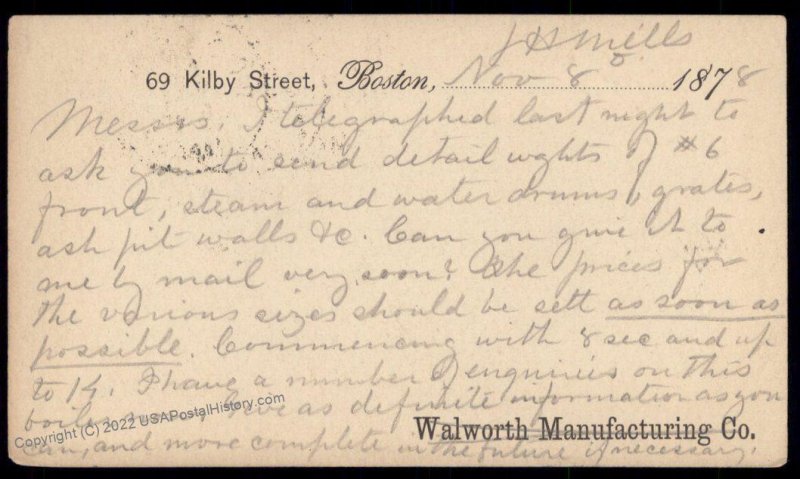 J H Mills
69 Kilby Street, Boston, Nov 8 1878
Messrs. I telegraphed last night to
ask you to send detail wghts of #6
front, steam and water drums, grates,
ash pit walls &c. Can you give it to
me by mail very soon? The prices for
the various sizes should be sett as soon as
possible. Commencing with 8 sec and up
to 14. I have a number of enquiries on this
boiler now, Give as definite information as you
can, and more complete in the future if necessary.
Walworth Manufacturing Co.
Copyright (C) 2022 USAPostalHistory.com